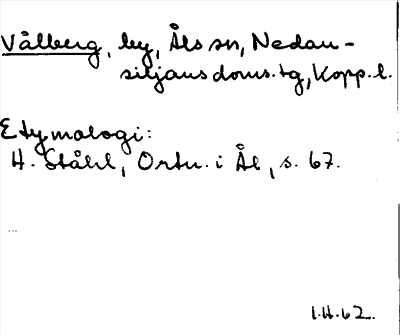 Vålberg, by, Åls sn, Nedan-
siljans doms.tg, Kopp. l.
Etymologi:
H. Ståhl, Ortn. i Ål, s. 67.
1.H.62.